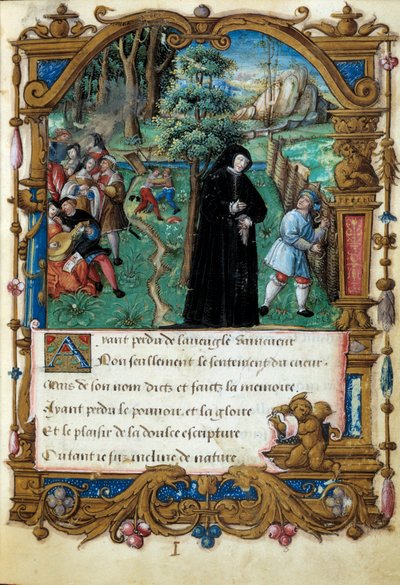 Ayant perdu de laveugle vaincueur
Non seullement le sentement du cueur,
Mais de son nom dictz et faictz la memoire,
Ayant perdu le pouvoir, et la gloire
Et le plaisir de la doulce escripture
Ou tant ie fuz incline de nature,
I